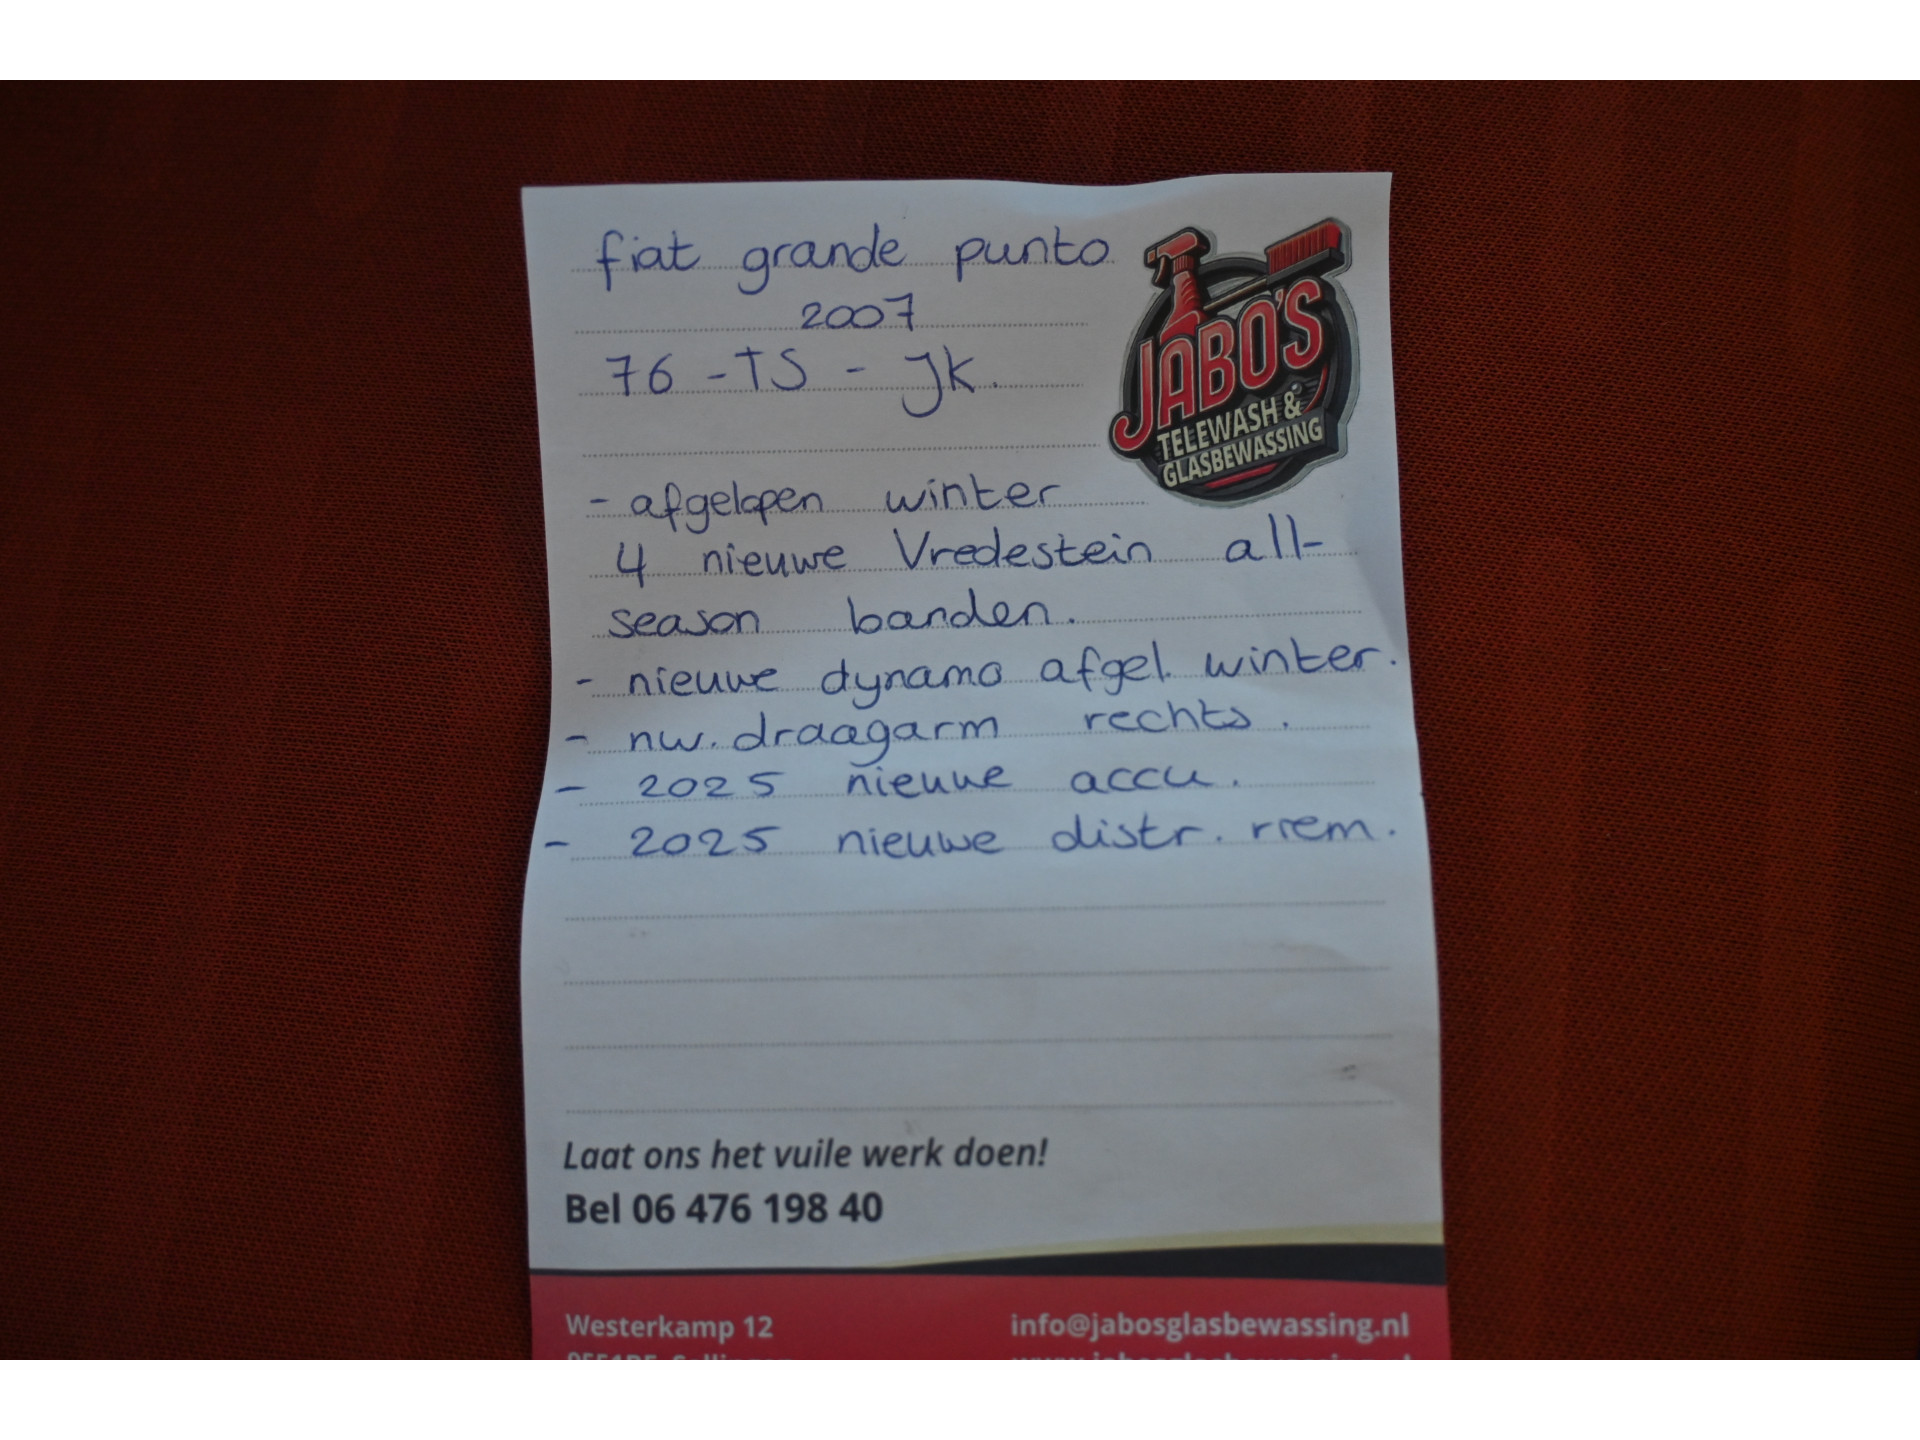 fiat grande punto
2007
76 - TS - JK.
JABO'S
TELEWASH &
GLASBEWASSING
- afgelopen winter
4 nieuwe Vredestein all-
season banden.
- nieuwe dynamo afgel. winter.
- nw. draagarm rechts.
- 2025 nieuwe accu.
- 2025 nieuwe distr. riem.
Laat ons het vuile werk doen!
Bel 06 476 198 40
Westerkamp 12
info@jabosglasbewassing.nl